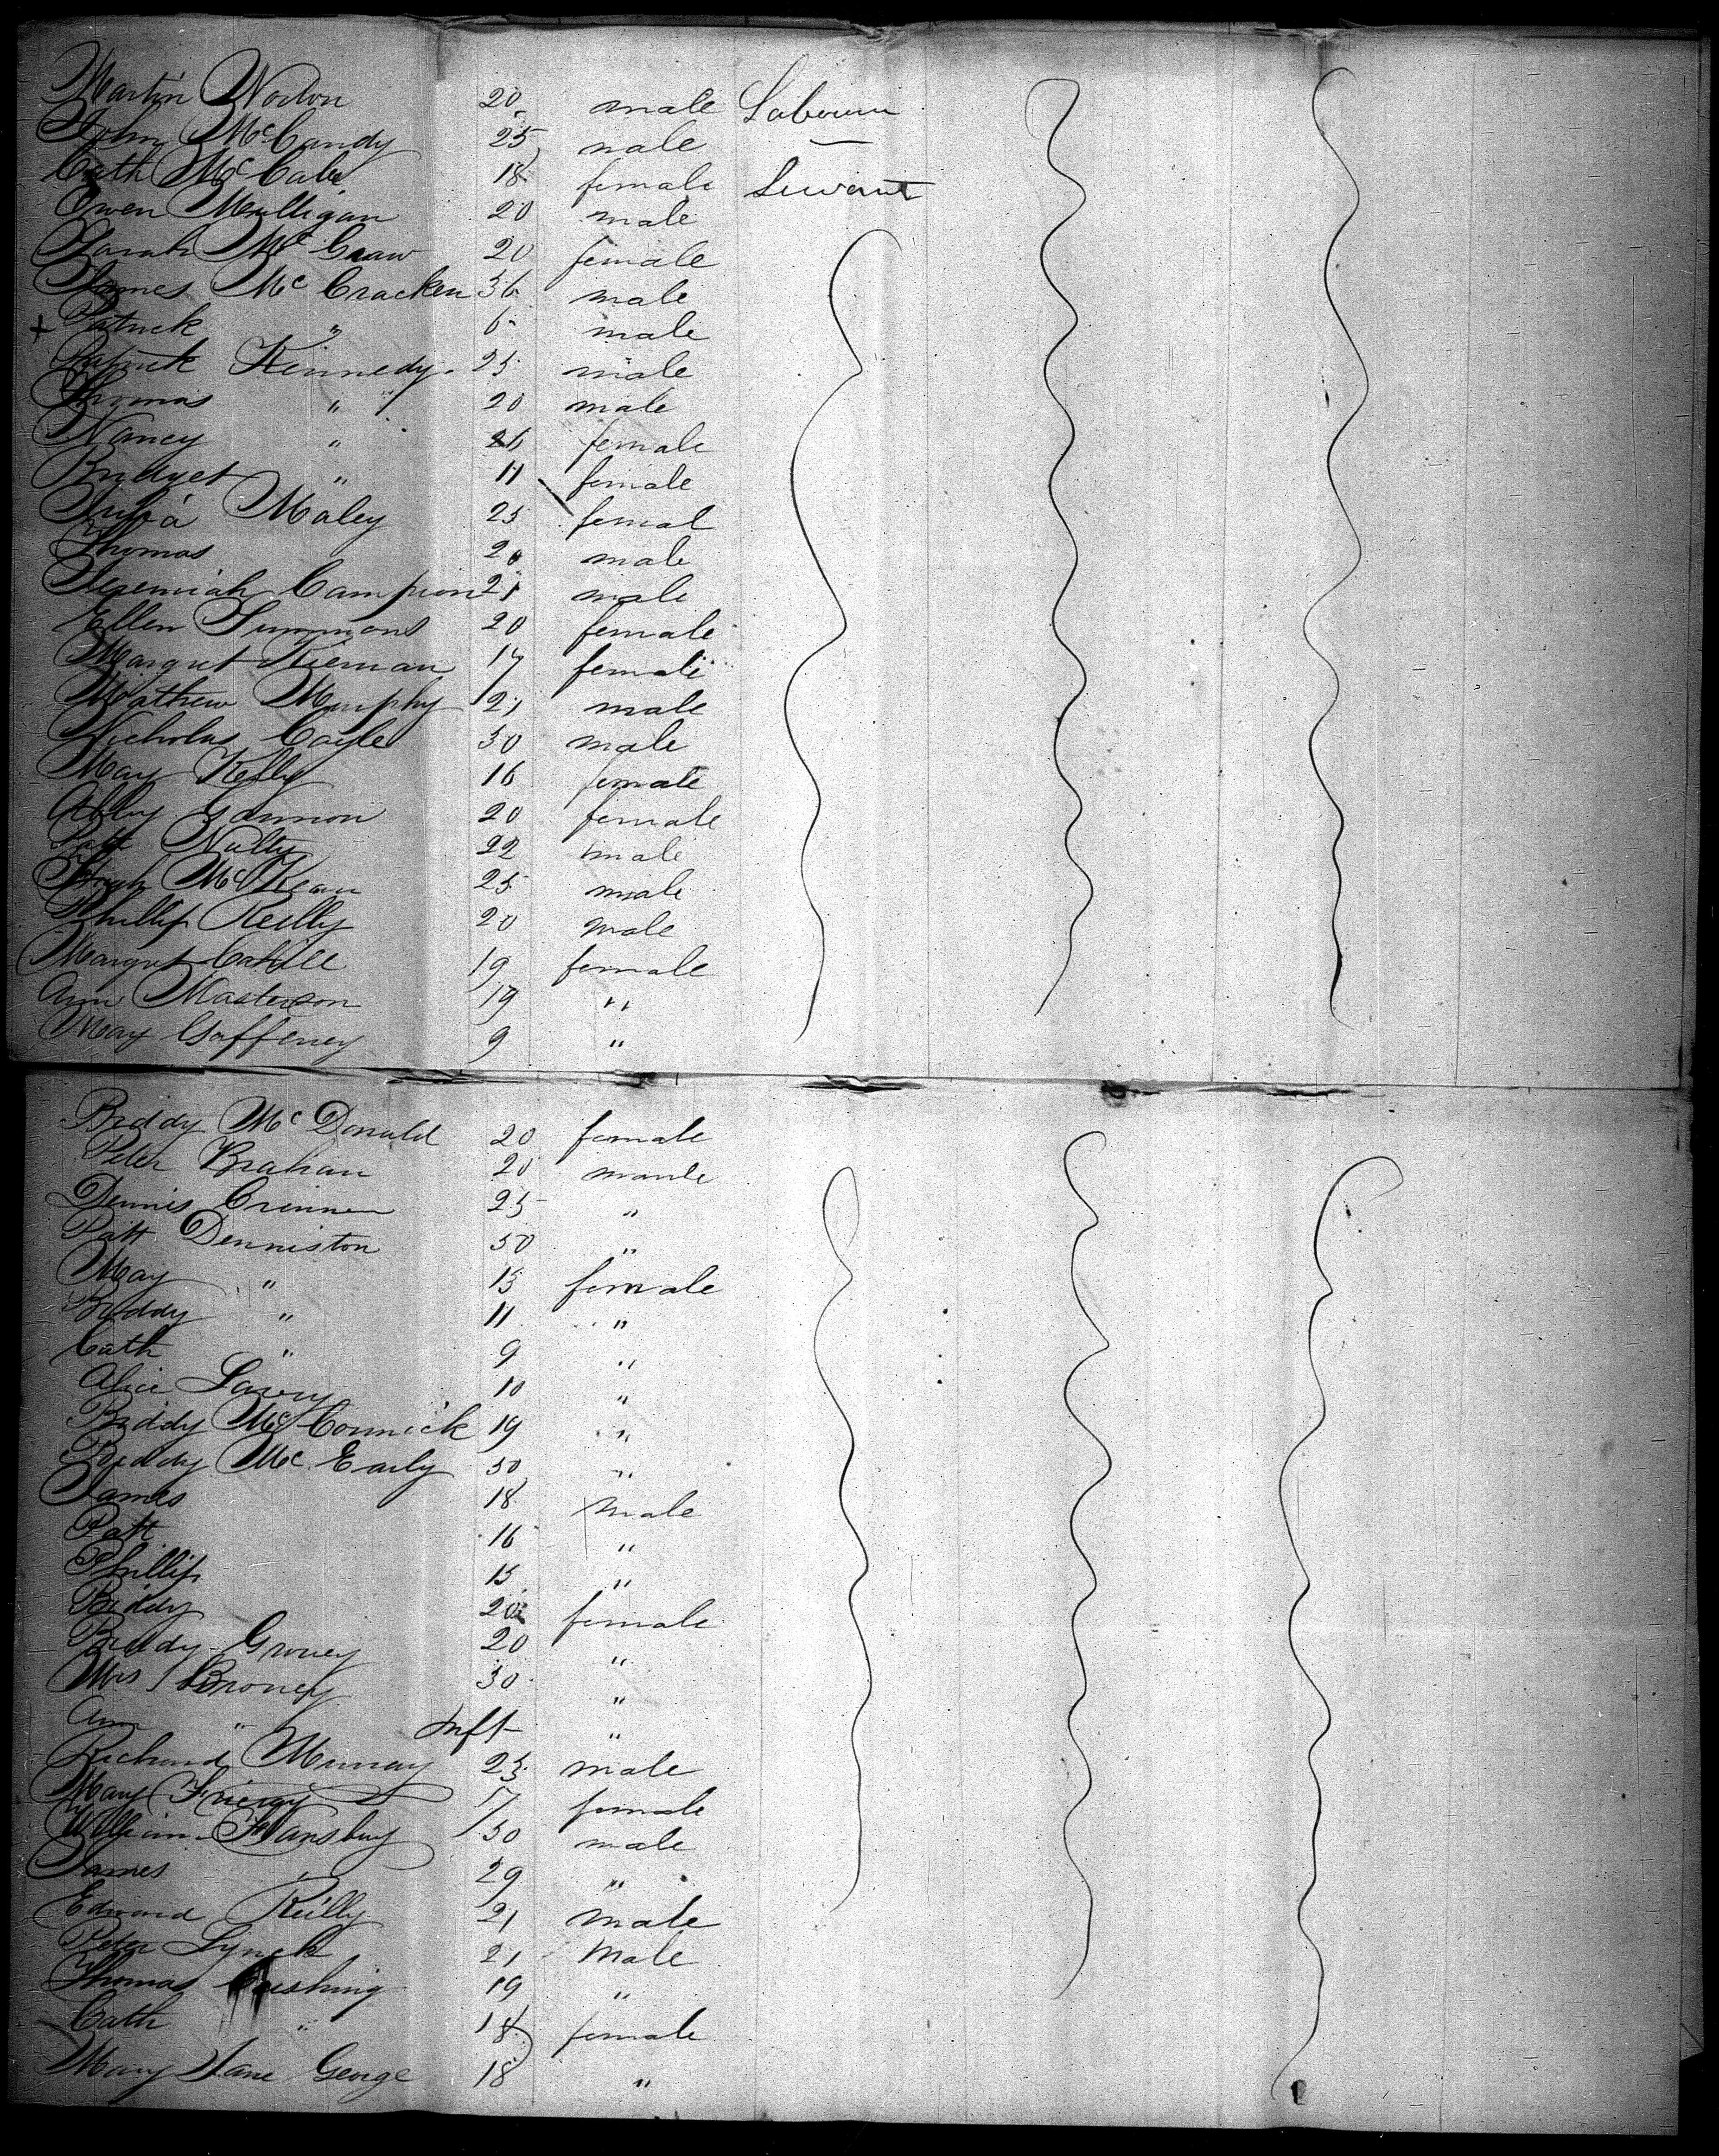 Martin Norton 20 male Labourer
John McCandy 25 male —
Cath McCabe 18 female Servant
Owen Mulligan 20 male
Sarah McGraw 20 female
James McCracken 36 male
+ Patrick " 6 male
Patrick Kennedy 25 male
Thomas " 20 male
Nancy " 26 female
Bridget " 11 female
Maley 25 femal
Thomas 20 male
Jeremiah Campion 21 male
Ellen Simmons 20 female
Margret Kiernan 17 female
Mathew Murphy 21 male
Nicholas Coyle 30 male
May Kelly 16 female
Abby Gannon 20 female
Patt Nulty 22 male
Hugh McKean 25 male
Phillip Reilly 20 male
Margret Cahill 19 female
Ann Masterson 19 "
May Gaffeney 9 "
Biddy McDonald 20 female
Peter Brahan 20 maile
Dennis Crinnen 25 "
Patt Denniston 50 "
May " 13 female
Biddy " 11 "
Cath " 9 "
Alice Lavry 10 "
Biddy McCormick 19 "
Biddy McEarly 50 "
James 18 male
Patt 16 "
Phillip 13 "
Biddy 20 female
Biddy Groney 20 "
Mrs Broney 30 "
Ann " Inft "
Richard Murray 23 male
Mary 17 female
William Hansbury 30 male
James " 29 "
Edward Reilly 21 male
Peter Lynch 21 Male
Thomas Cushing 19 "
Cath " 18 female
Mary Jane George 18 "